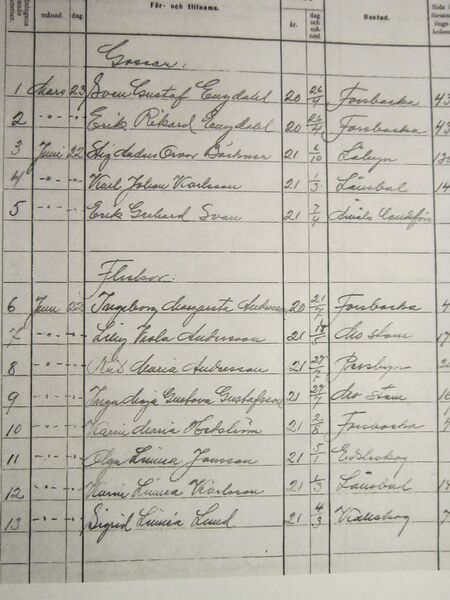 månad. dag. För- och tillnamn. år. dag och månad. Bostad. Sida i
Gossar:
1 Mars 23 Sven Gustaf Engdahl 20 26/9 Forsbacka 43
2 " " Erik Rikard Engdahl 20 26/4 Forsbacka 43
3 Juni 22 Stig 21 6/10
4 " " Karl Johan Karlsson 21 1/3 Länsbol 14
5 " " Erik Gerhard Svan 21 7/4 Åmåls Landsförs
Flickor:
6 Juni 22 Ingeborg Margareta Andersson 20 21/7 Forsbacka 4
7 " " Lilly Viola Andersson 21 Mo Stom 17
8 " " Maria Andersson 21 27/7
9 " " Inga Maja Gustava Gustafsson 21 27/7 Mo Stom
10 " " Karin Maria Hedström 21 2/8 Forsbacka
11 " " Olga Linnea Jansson 21 5/1 Edsleskog
12 " " Karin Linnea Karlsson 21 1/3 Länsbol 14
13 " " Sigrid Linnéa Lund 21 4/3 7